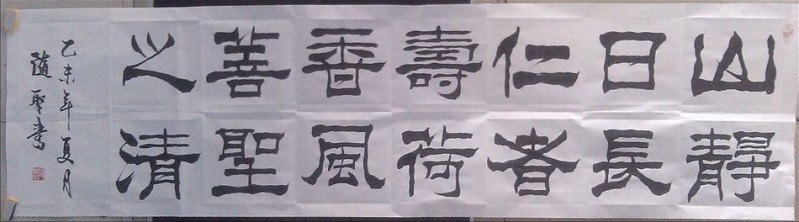 山靜
日長
仁者
壽荷
香風
善聖
之清
乙未年夏月
隨聖書